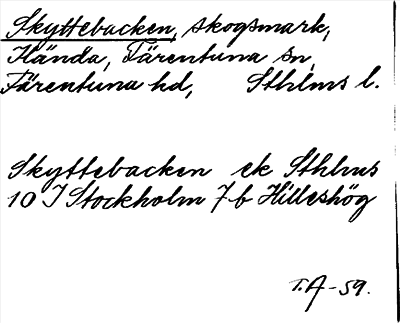 Skyttebacken, skogsmark,
Hända, Färentuna sn,
Färentuna hd, Sthlms l.
Skyttebacken ek Sthlms
10 I Stockholm 7 b Hilleshög
T.A-59.